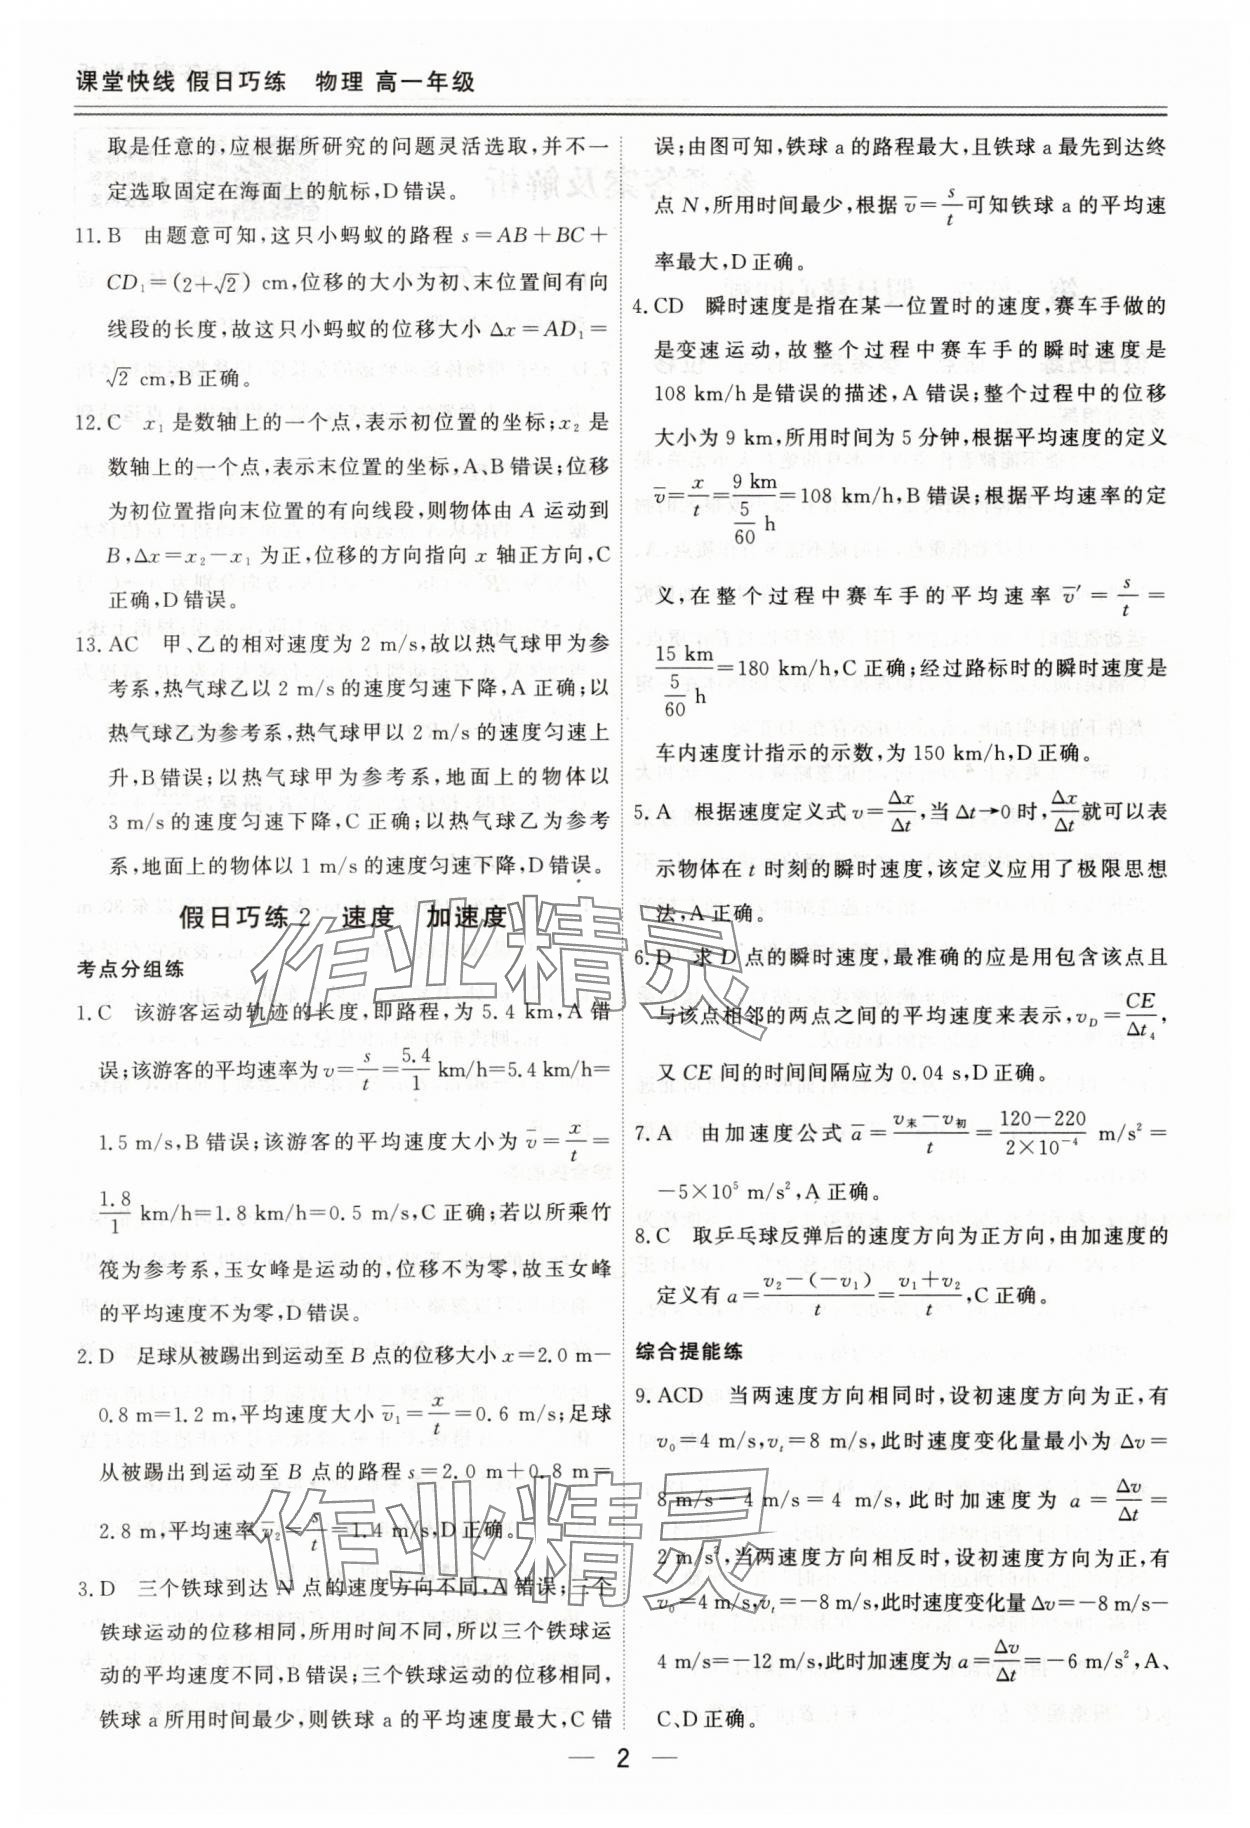 课堂快线 假日巧练　物理 高一年级
取是任意的,应根据所研究的问题灵活选取,并不一
定选取固定在海面上的航标,D错误。
11.B　由题意可知,这只小蚂蚁的路程 s=AB+BC+
CD₁=(2+√2) cm,位移的大小为初、末位置间有向
线段的长度,故这只小蚂蚁的位移大小 Δx=AD₁=
√2 cm,B正确。
12.C　x₁ 是数轴上的一个点,表示初位置的坐标;x₂ 是
数轴上的一个点,表示末位置的坐标,A、B错误;位移
为初位置指向末位置的有向线段,则物体由 A 运动到
B,Δx=x₂-x₁ 为正,位移的方向指向 x 轴正方向,C
正确,D错误。
13.AC　甲、乙的相对速度为 2 m/s,故以热气球甲为参
考系,热气球乙以 2 m/s 的速度匀速下降,A正确;以
热气球乙为参考系,热气球甲以 2 m/s 的速度匀速上
升,B错误;以热气球甲为参考系,地面上的物体以
3 m/s 的速度匀速下降,C正确;以热气球乙为参考
系,地面上的物体以 1 m/s 的速度匀速下降,D错误。
假日巧练2　速度　加速度
考点分组练
1.C　该游客运动轨迹的长度,即路程,为 5.4 km,A错
误;该游客的平均速率为 v=s/t=5.4/1 km/h=5.4 km/h=
1.5 m/s,B错误;该游客的平均速度大小为 v̄=x/t=
1.8/1 km/h=1.8 km/h=0.5 m/s,C正确;若以所乘竹
筏为参考系,玉女峰是运动的,位移不为零,故玉女峰
的平均速度不为零,D错误。
2.D　足球从被踢出到运动至 B 点的位移大小 x=2.0 m-
0.8 m=1.2 m,平均速度大小 v̄₁=x/t=0.6 m/s;足球
从被踢出到运动至 B 点的路程 s=2.0 m+0.8 m=
2.8 m,平均速率 v̄₂=s/t=1.4 m/s,D正确。
3.D　三个铁球到达 N 点的速度方向不同,A错误;三个
铁球运动的位移相同,所用时间不同,所以三个铁球运
动的平均速度不同,B错误;三个铁球运动的位移相同,
铁球 a 所用时间最少,则铁球 a 的平均速度最大,C错
误;由图可知,铁球 a 的路程最大,且铁球 a 最先到达终
点 N,所用时间最少,根据 v̄=s/t 可知铁球 a 的平均速
率最大,D正确。
4.CD　瞬时速度是指在某一位置时的速度,赛车手做的
是变速运动,故整个过程中赛车手的瞬时速度是
108 km/h 是错误的描述,A错误;整个过程中的位移
大小为 9 km,所用时间为 5 分钟,根据平均速度的定义
v̄=x/t=9 km/(5/60 h)=108 km/h,B错误;根据平均速率的定
义,在整个过程中赛车手的平均速率 v̄′=s/t=
15 km/(5/60 h)=180 km/h,C正确;经过路标时的瞬时速度是
车内速度计指示的示数,为 150 km/h,D正确。
5.A　根据速度定义式 v=Δx/Δt,当 Δt→0 时,Δx/Δt就可以表
示物体在 t 时刻的瞬时速度,该定义应用了极限思想
法,A正确。
6.D　求 D 点的瞬时速度,最准确的应是用包含该点且
与该点相邻的两点之间的平均速度来表示,v_D=CE/Δt₄,
又 CE 间的时间间隔应为 0.04 s,D正确。
7.A　由加速度公式 a̅=(v末-v初)/t=(120-220)/(2×10⁻⁴) m/s²=
-5×10⁵ m/s²,A正确。
8.C　取乒乓球反弹后的速度方向为正方向,由加速度的
定义有 a=(v₂-(-v₁))/t=(v₁+v₂)/t,C正确。
综合提能练
9.ACD　当两速度方向相同时,设初速度方向为正,有
v₀=4 m/s,vₜ=8 m/s,此时速度变化量最小为 Δv=
8 m/s-4 m/s=4 m/s,此时加速度为 a=Δv/Δt=
2 m/s²,当两速度方向相反时,设初速度方向为正,有
v₀=4 m/s,vₜ=-8 m/s,此时速度变化量 Δv=-8 m/s-
4 m/s=-12 m/s,此时加速度为 a=Δv/Δt=-6 m/s²,A、
C、D正确。
— 2 —
作业精灵
作业精灵